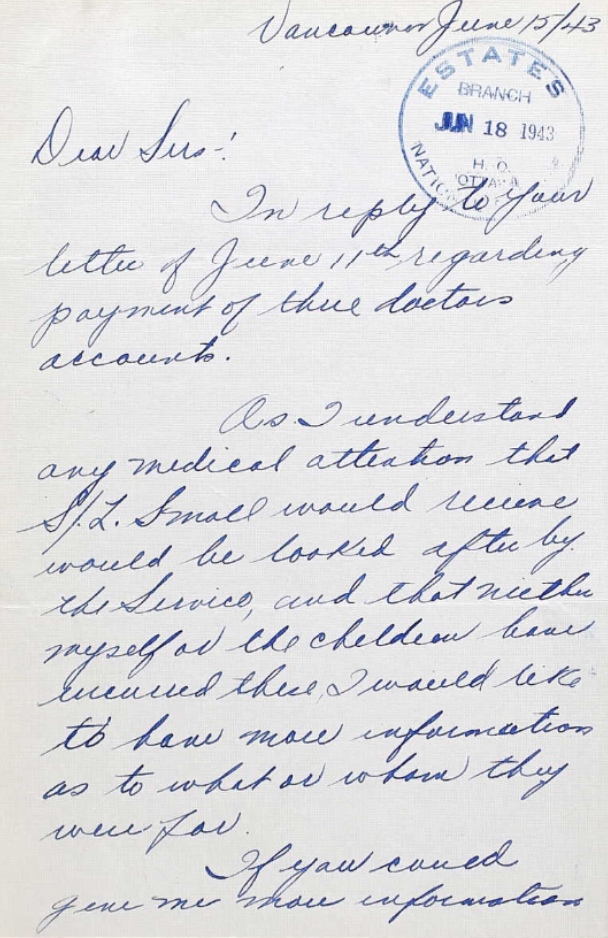 Vancouver June 15/43
ESTATES
BRANCH
JUN 18 1943
H. Q.
OTTAWA
Dear Sirs-:
In reply to your
letter of June 11th, regarding
payment of three doctors
accounts.
As I understand
any medical attention that
S/L. Small would receive
would be looked after by
the Service, and that neither
myself or the children have
incurred these, I would like
to have more information
as to what or whom they
were for.
If you could
give me more information